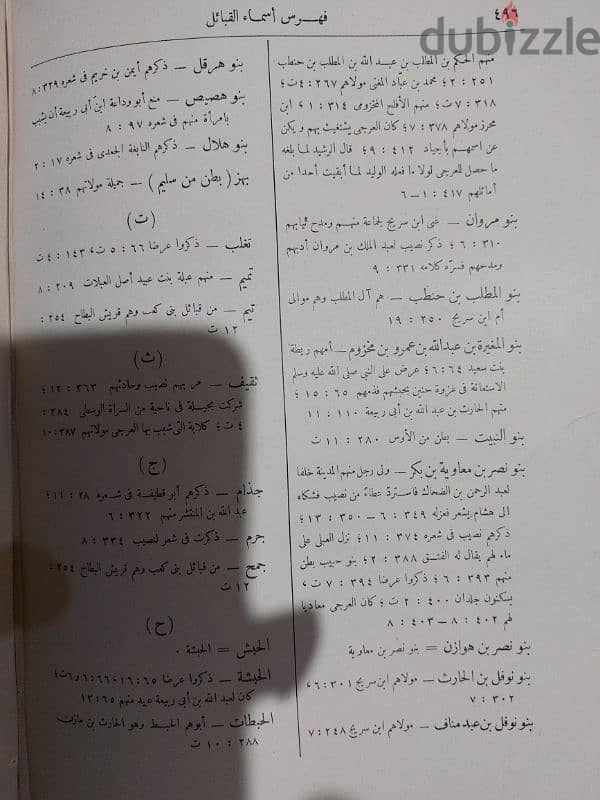 ٤٩٦
فهرس أسماء القبائل
dubizzle
منهم الحكم بن المطلب بن عبد الله بن المطلب بن حنطب
٢٥١ : ٢؛ محمد بن عبّاد المغنى مولاهم ٢٦٧ : ٤ت؛
٣١٨ : ٧ت؛ منهم الأفلح المخزومى ٣١٤ : ١، ابن
محرز مولاهم ٣٧٨ : ٧؛ كان العرجى يشتغيث بهم ويكن
عن اسمهم بأجياد ٤١٢ : ٩؛ قال الرشيد لما بلغه
ما حصل للعرجى لولا ما فعله الوليد لما أبقيت أحدا من
أماثلهم ٤١٧ : ١-٦
بنو مروان — غنى ابن سريج لجماعة منهم ومدح ثيابهم
٣١٠ : ٦؛ ذكر نصيب لعبد الملك بن مروان أدبهم
ومدحهم فسرّه كلامه ٣٣١ : ٩
بنو المطلب بن حنطب — هم آل المطلب وهم موالى
أم ابن سريج ٢٥٠ : ١٩
بنو المغيرة بن عبد الله بن عمرو بن مخزوم — أمهم ريطة
بنت سعيد ٦٤ : ٦؛ عرض على النبى صلى الله عليه وسلم
الاستعانة فى غزوة حنين بحبشهم فذمهم ٦٥ : ١٥؛
منهم الحارث بن عبد الله بن أبى ربيعة ١١٠ : ١١
بنو النبيت — بطن من الأوس ٢٨٠ : ١١ ت
بنو نصر بن معاوية بن بكر — ولى رجل منهم المدينة خلفا
لعبد الرحمن بن الضحاك فاسترد عطاء من نصيب فشكاه
الى هشام بشعر فعزله ٣٤٩ : ٦ — ٣٥٠ : ١٣؛
ذكرهم نصيب فى شعره ٣٧٤ : ١١؛ نزل العبلى على
ماء لهم يقال له الفتق ٣٨٨ : ٢؛ بنو حبيب بطن
منهم ٣٩٣ : ٦؛ ذكروا عرضا ٣٩٤ : ٧ ت،
يسكنون جلدان ٤٠٠ : ٢ ت؛ كان العرجى معاديا
لهم ٤٠٢ : ٨-٤٠٣ : ٨
بنو نصر بن هوازن = بنو نصر بن معاوية
بنو نوفل بن الحارث — مولاهم ابن سريج ٣٠١ : ٦،
٣٠٢ : ٧
بنو نوفل بن عبد مناف — مولاهم ابن سريج ٢٤٨ : ٧
بنو هرقل — ذكرهم أيمن بن خريم فى شعره ٣٢٩ : ٨
بنو هصيص — منع أبو وداعة ابن أبى ربيعة أن يشبب
بامرأة منهم فى شعره ٩٧ : ٨
بنو هلال — ذكرهم النابغة الجعدى فى شعره ١٧ : ٢
بهز (بطن من سليم) — جميلة مولاتهم ٣٨ : ١٤
(ت)
تغلب — ذكروا عرضا ٦٦ : ٥ ت، ١٤٣ : ٤ ت
تميم — منهم عبلة بنت عبيد أصل العبلات ٢٠٩ : ٨
تيم — من قبائل بنى كعب وهم قريش البطاح ٢٥٤ :
١٢ ت
(ث)
ثقيف — مر بهم نصيب وحادثهم ٣٦٣ : ١٢؛
شركت بجيلة فى ناحية من السراة الوسطى ٣٨٤ :
٤ ت؛ كلابة التى شبب بها العرجى مولاتهم ٣٨٧ : ١٠
(ج)
جذام — ذكرهم أبو قطيفة فى شعره ٢٨ : ١١؛
عبد الله بن المنتشر منهم ٣٢٢ : ٦
جرم — ذكرت فى شعر لنصيب ٣٣٤ : ٨
جمح — من قبائل بنى كعب وهم قريش البطاح ٢٥٤ :
١٢ ت
(ح)
الحبش = الحبشة ٠
الحبشة — ذكروا عرضا ٦٥ : ١٦، ٦٦ : ٦ و٦ت؛
كان لعبد الله بن أبى ربيعة عبيد منهم ٦٥ : ١٣
الحبطات — أبوهم الحبط وهو الحارث بن مازن
٢٨٨ : ١٠ ت